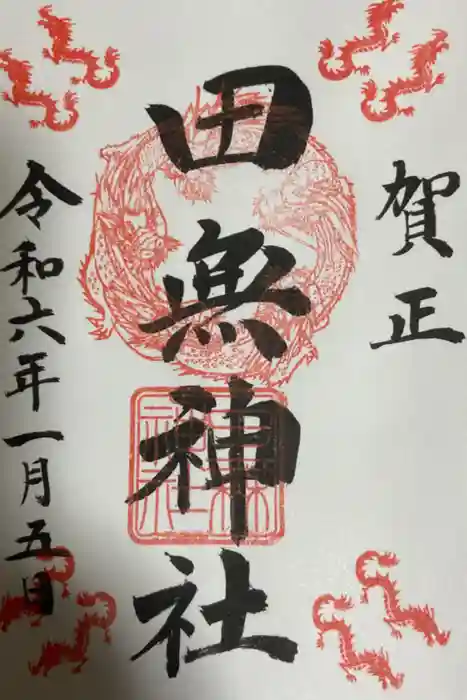 賀正
田無神社
令和六年一月五日